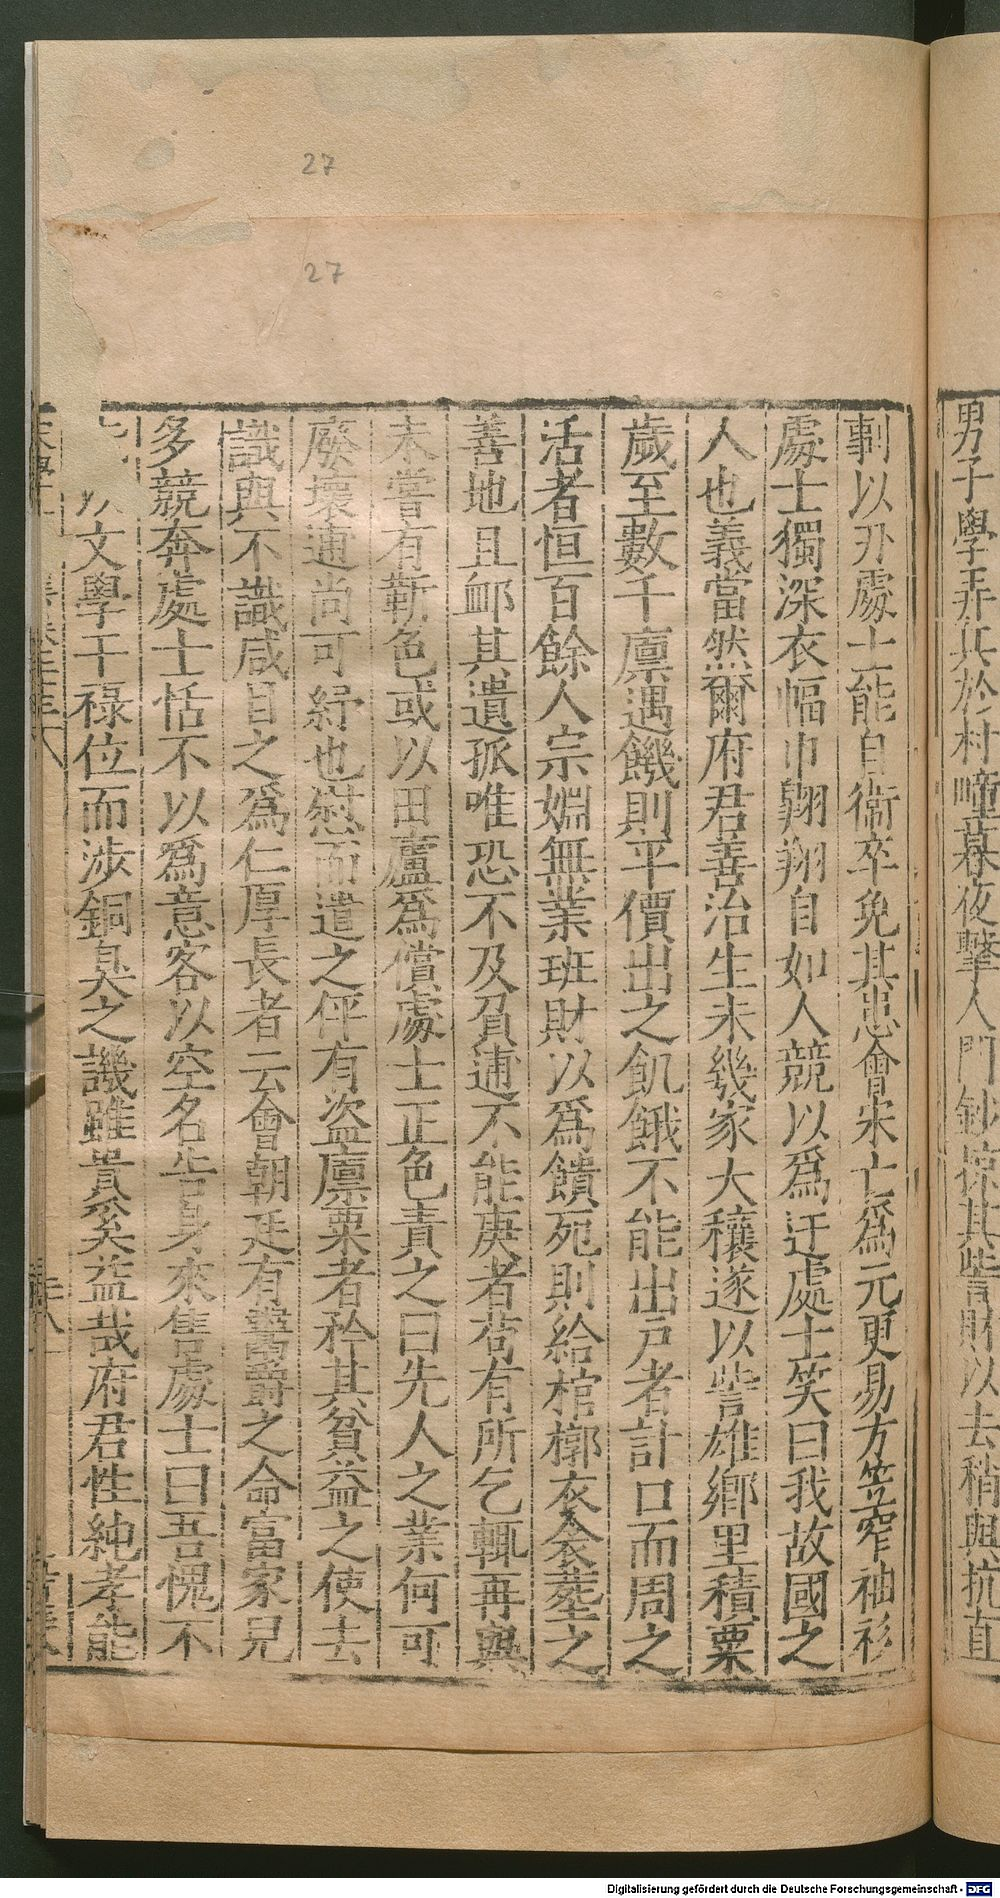 男子學弄兵於村疃暮夜擊人門鈔掠其訾財以去稍與抗直
剚以刃處士能自衞卒免其患會宋亡爲元更易方笠窄袖衫
處士獨深衣幅巾翺翔自如人競以爲迂處士笑曰我故國之
人也義當然爾府君善治生未幾家大穰遂以訾雄鄉里積粟
歲至數千廪遇饑則平價出之飢餓不能出戸者計口而周之
活者恒百餘人宗婣無業班財以爲饋死則給棺槨衣衾塟之
善地且卹其遺孤唯恐不及負逋不能庚者苟有所乞輒再與
未嘗有靳色或以田廬爲償處士正色責之曰先人之業何可
廢壞逋尚可紓也慰而遣之伻有盗廪粟者矜其貧益之使去
識與不識咸目之爲仁厚長者云會朝廷有鬻爵之命富家兒
多競奔處士恬不以爲意客以空名告身來售處士曰吾愧不
以文學干禄位而涉銅臭之譏雖貴奚益哉府君性純孝能
27
27
Digitalisierung gefördert durch die Deutsche Forschungsgemeinschaft - DFG